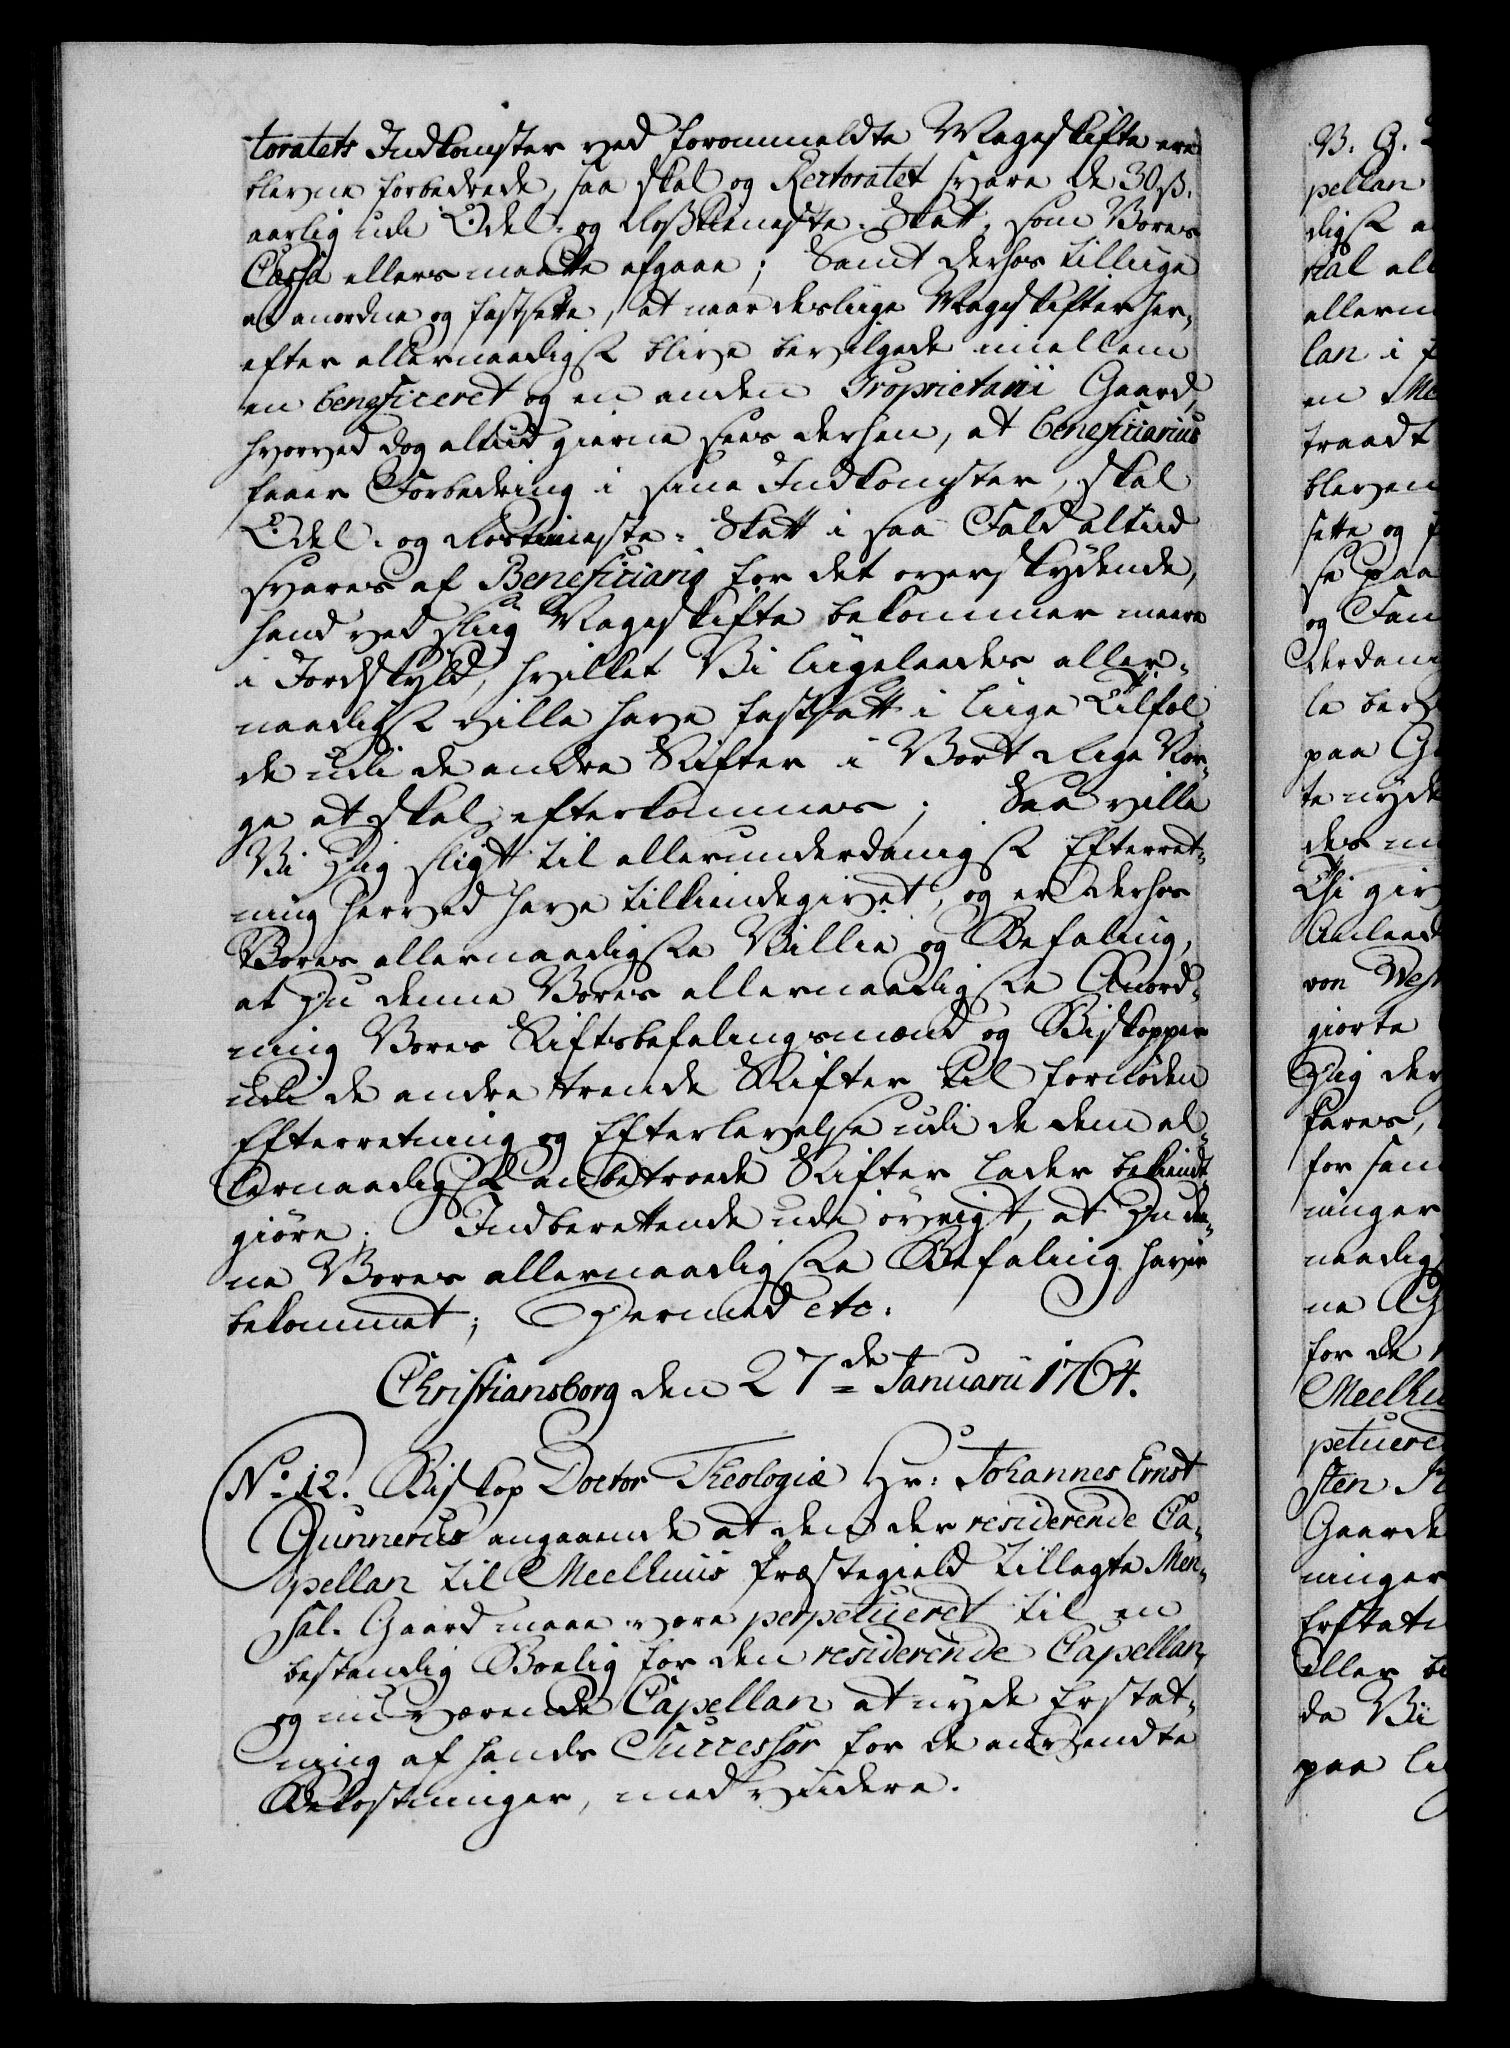 toratets Indkomster ved forommeldte Mageskifte ere
blevne forbedrede, saa skal og Rectoratet svare de 30 ß.
aarlig udi Odel- og Rosstieneste-Skatt, som Vores
Cassa ellers maatte afgaae; Samt derhos tillige
at anordne og fastsette, at naar deslige Mageskifter her-
efter allernaadigst blive bevilgede imellem
en beneficeret og en anden Proprietarii Gaard,
hvorved dog altiid gierne sees derhen, at beneficiarius
faaer Forbedring i sine Indkomster, skal
Odel- og Rostieneste-Skatt i saa Fald altiid
svares af Beneficiario for det overskydende,
hand ved sliig Mageskifte bekommer meere
i Jordskyld, hvilket Vi liigeleedes aller-
naadigst ville have fastsatt i liige Tilfæl-
de udi de andre Stifter i Vort Rige Nor-
ge at skal efterkommes; Saa ville
Vi Dig sligt til allerunderdanigst Efterret-
ning herved have tilkiendegivet, og er derhos
Vores allernaadigste Villie og Befaling,
at Du denne Vores allernaadigste Anord-
ning Vores Stiftsbefalingsmænd og Biskopper
udi de andre trende Stifter til fornöden
Efterretning og Efterlevelse udi de dem al-
lernaadigst anbetroede Stifter lader bekiendt-
giöre. Indberettende udi övrigt, at Du den-
ne Vores allernaadigste Befaling haver
bekommet; Dermed etc.
Christiansborg den 27de Januarii 1764.
No. 12. Biskop Doctor Theologiæ Hr: Johannes Ernst
Gunnerus angaaende at den der residerende Ca-
pellan til Meelhuus Præstegield tillagte Men-
sal-Gaard maae være perpetueret til en
bestandig Boelig for den residerende Capellan,
og nu værende Capellan at nyde Erstat-
ning af hands Successor for de anvendte
Bekostninger, med viidere.
V. G.
pellan
digst
kal all
allern
lan i
en Me
traadt
bleven
sette og
se paa
og
derdan
le
paa
te nyde
des
Thi giv
Anleed
von West
giorte
Dig der
fares,
for
ninger
naadig
ne
for de
Meelhu
petuere
sten
Gaarde
ninger
Erstat
eller
da Vi
paa